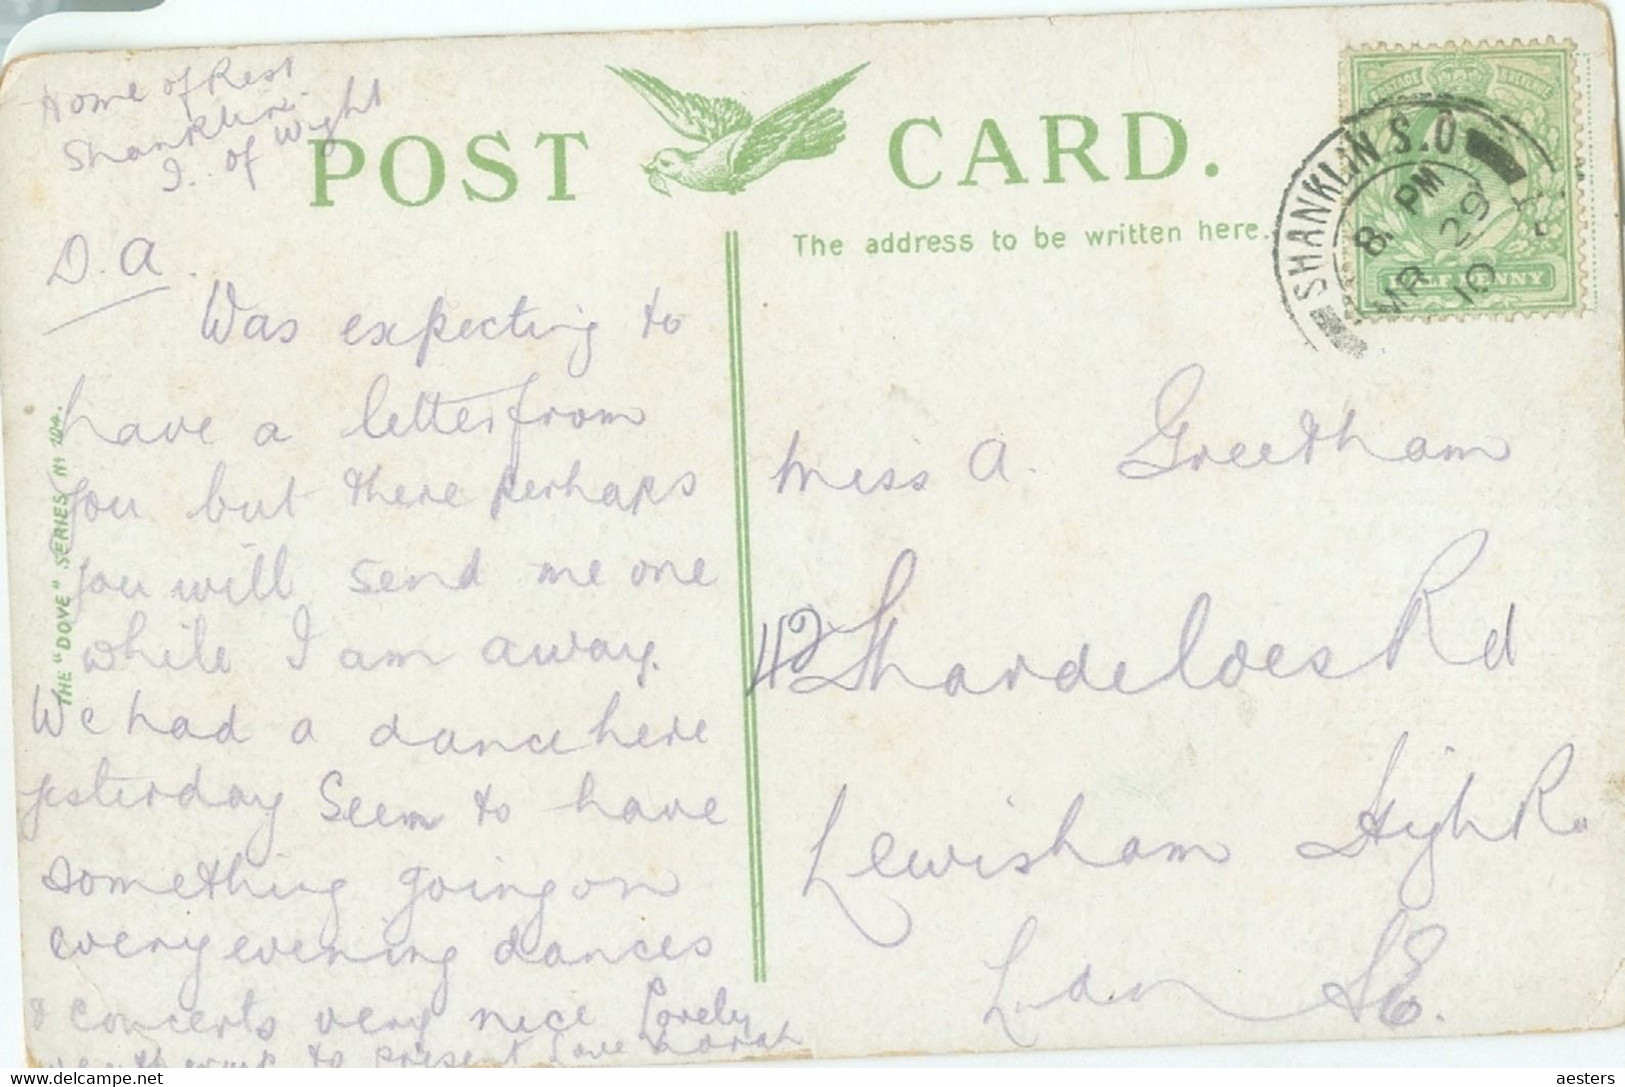 Home of Rest
Shanklin.
I. of Wight
POST CARD.
The address to be written here.
SHANKLIN S.O
8. PM
MR 29
10
POSTAGE REVENUE
HALFPENNY
THE "DOVE" SERIES No 104.
D. A.
Was expecting to
have a letter from
you but there perhaps
you will send me one
while I am away.
We had a dance here
yesterday seem to have
something going on
every evening dances
& concerts very nice Lovely
weather up to present Love Norah
Miss A. Greetham
42 Shardeloes Rd
Lewisham High R.
Lon S.E.
aesters